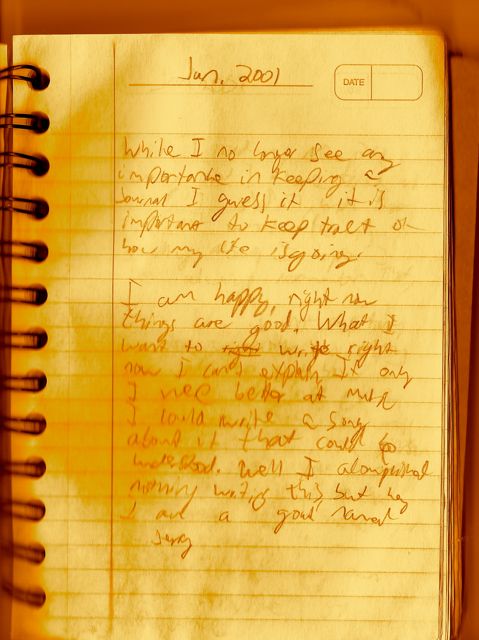 Jan, 2001
DATE
While I no longer see any
importance in keeping a
Journal I guess it it is
important to keep tract of
how my life is going.
I am happy, right now
things are good. What I
want to write right
now I can't explain. If only
I were better at music
I could write a song
about it that could be
understood. Well I
nothing writing this but hey
I am a good